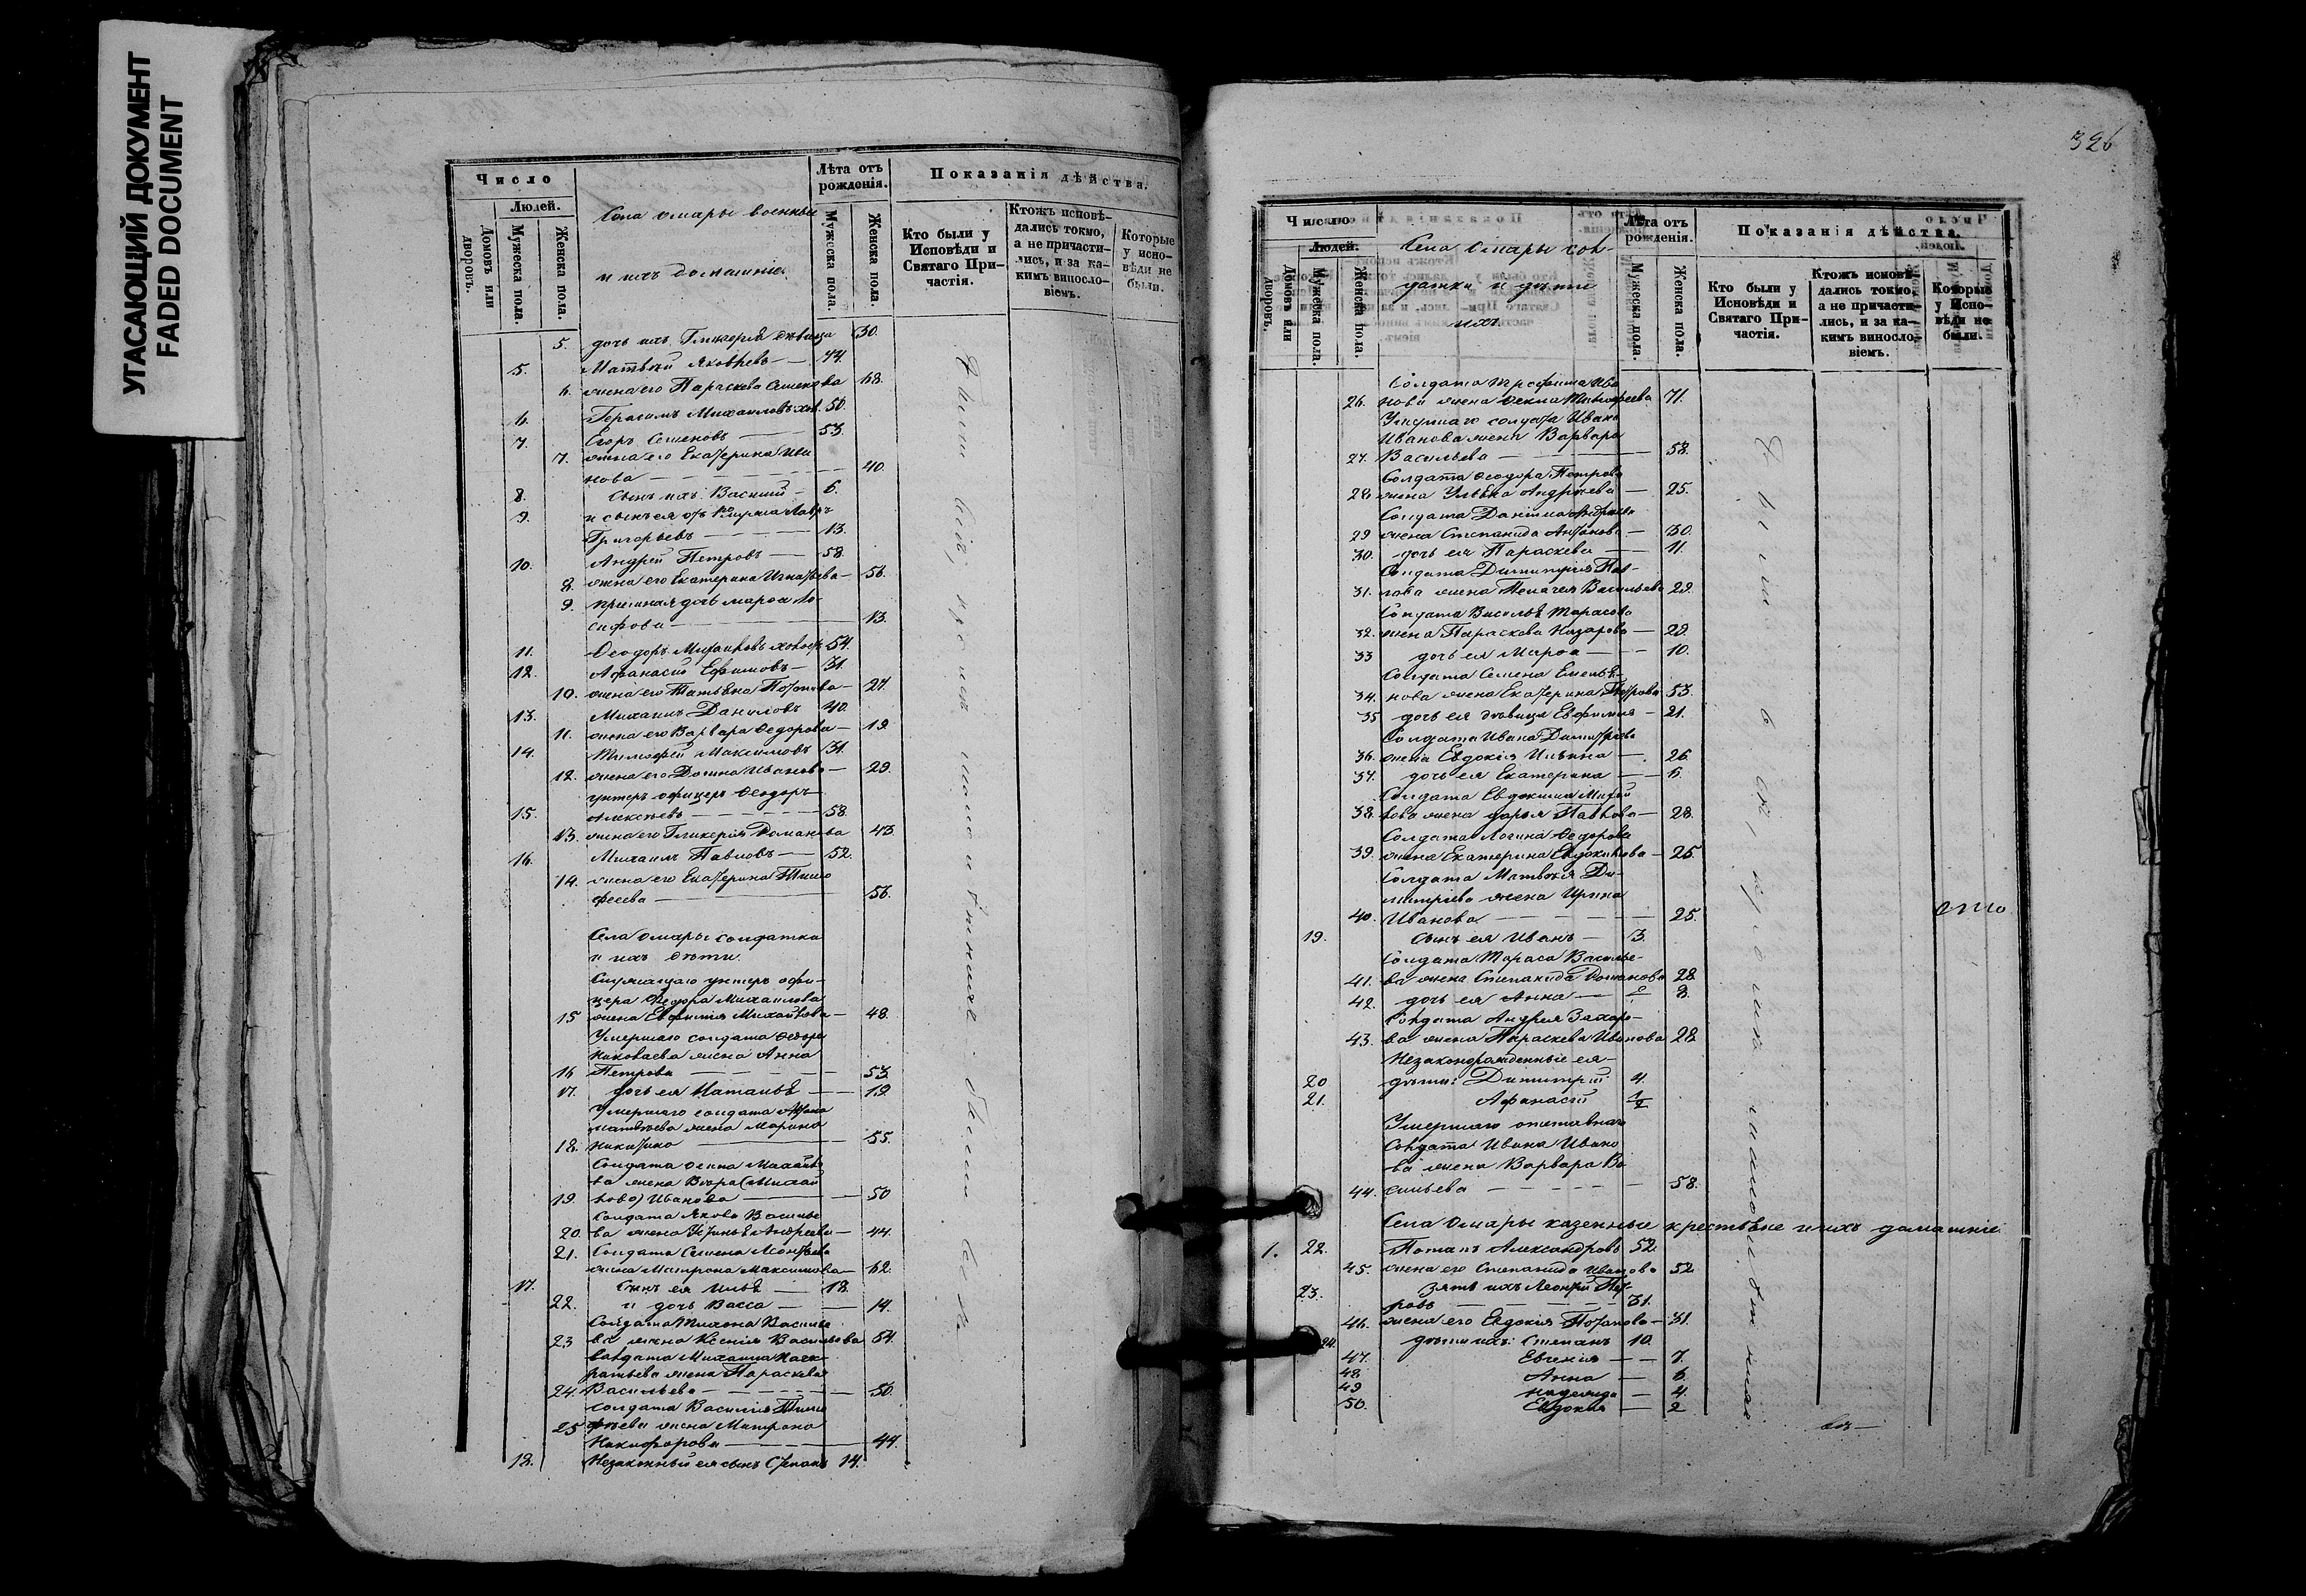 УГАСАЮЩИЙ ДОКУМЕНТ
FADED DOCUMENT
Число
Людей.
Домовъ или дворовъ.
Мужеска пола.
Женска пола.
Села Омары военные
и ихъ домашніе
Лѣта отъ рожденія.
Мужеска пола.
Женска пола.
Показанія дѣйства.
Кто были у Исповѣди и Святаго Причастія.
Ктожъ исповѣдались токмо, а не причастились, и за какимъ винословіемъ.
Которые у исповѣди не были.
5. дочь ихъ Гликерія дѣвица 30.
5. Матвѣй Яковлевъ — 74.
6. жена его Параскева Семенова 68.
6. Герасимъ Михаиловъ хол. 50.
7. Егоръ Семеновъ — 53.
7. жена его Екатерина Ива
нова — 40.
8. сынъ ихъ Василій — 6.
9. и сынъ ея отъ 1го мужа Лавръ
Григорьевъ — 13.
10. Андрей Петровъ — 58.
8. жена его Екатерина Игнатьева — 56.
9. пріемная дочь Марѳа Іо-
сифова — 13.
11. Ѳеодоръ Михаиловъ холост. 54.
12. Афанасій Ефимовъ — 31.
10. жена его Татьяна Потапова — 27.
13. Михаилъ Даниловъ 40.
11. жена его Варвара Ѳедорова — 19.
14. Тимофей Максимовъ 31.
12. жена его Домна Иванова — 29.
унтеръ офицеръ Ѳеодоръ
15. Алексѣевъ — 58.
13. жена его Гликерія Романова 43.
16. Михаилъ Павловъ — 52.
14. жена его Екатерина Тимо
феева — 56.
Села Омары солдатки
и ихъ дѣти.
Служащаго унтеръ офи-
цера Ѳедора Михаилова
15 жена Евфимія Михайлова — 48.
Умершаго солдата Ѳедора
Николаева жена Анна
16 Петрова — 53.
17. дочь ея Наталья — 19.
Умершаго солдата
Матвѣева жена Марина
18. Никитина — 55.
Солдата Осипа Михайло
ва жена
19. Иванова — 50
Солдата Якова Василье
20. ва жена Устинья Андреева — 44.
21. Солдата Семена Леонтьева
жена Матрона Максимова — 62.
17. сынъ ея Илья — 18.
22. и дочь Васса — 14.
Солдата Тихона Василье
23 ва жена Ксенія Васильева 54.
Солдата Михаила Панк-
ратьева жена Параскева
24. Васильева — 50.
Солдата Василія Тимо
25 феева жена Матрона
Никифорова — 44.
18. Незаконный ея сынъ Степанъ 14.
были всѣ, кромѣ малолѣтнихъ
326
Число
Людей.
Домовъ или дворовъ.
Мужеска пола.
Женска пола.
Села Омары сол-
датки и дѣти
ихъ.
Лѣта отъ рожденія.
Мужеска пола.
Женска пола.
Показанія дѣйства.
Кто были у Исповѣди и Святаго Причастія.
Ктожъ исповѣдались токмо, а не причастились, и за какимъ винословіемъ.
Которые у Исповѣди не были.
Солдата Трофима Ива
26. нова жена Ѳекла Тимофеева 71.
Умершаго солдата Ивана
Иванова жена Варвара
27. Васильева — 58.
Солдата Ѳеодора Петрова
28 жена Ульяна Андреева — 25.
Солдата Даніила Андреева
29 жена Степанида Антонова — 30.
30. дочь ея Параскева — 11.
Солдата Димитрія Пав-
31. лова жена Пелагея Васильева 29.
Солдата Василья Тарасова
32. жена Параскева Назарова — 28.
33 дочь ея Марѳа — 10.
Солдата Семена Емелья-
34. нова жена Екатерина Петрова 53.
35 дочь ея дѣвица Евфимія — 21.
Солдата Ивана Димитріева
36. жена Евдокія Ильина — 26.
37. дочь ея Екатерина — 6.
Солдата Евдокима Михай
38. лова жена Дарья Павлова — 28.
Солдата Логина Ѳедорова
39. жена Екатерина Евдокимова — 25.
Солдата Матвѣя Ди-
митріева жена Ирина
40. Иванова — 25.
19. сынъ ея Иванъ — 3.
Солдата Тараса Василье-
41. ва жена Степанида Романова 28
42. дочь ея Анна — 8.
Солдата Андрея Захаро-
43. ва жена Параскева Иванова 28
Незаконорожденные ея
20 дѣти: Димитрій 4.
21. Афанасій 1/2
Умершаго отставнаго
Солдата Ивана Ивано
ва жена Варвара Ва
44. сильева — 58.
Села Омары казенные крестьяне и ихъ домашніе.
1. 22. Потапъ Александровъ 52.
45. жена его Степанида Иванова 52.
23. Зять ихъ Леонтій Пет-
ровъ — 31.
46. жена его Евдокія Потапова — 31.
24. дѣти ихъ: Степанъ 10.
47. Евгенія — 7.
48 Анна — 6.
49 Надежда — 4.
50. Евдокія — 2
были всѣ, кромѣ малолѣтнихъ